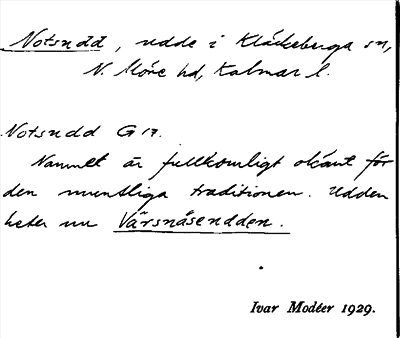 Notsudd, udde i Kläckeberga sn,
N. Möre hd, Kalmar l.
Notsudd G 17.
Namnet är fullkomligt okänt för
den muntliga traditionen. Udden
heter nu Värsnäsendden.
Ivar Modéer 1929.